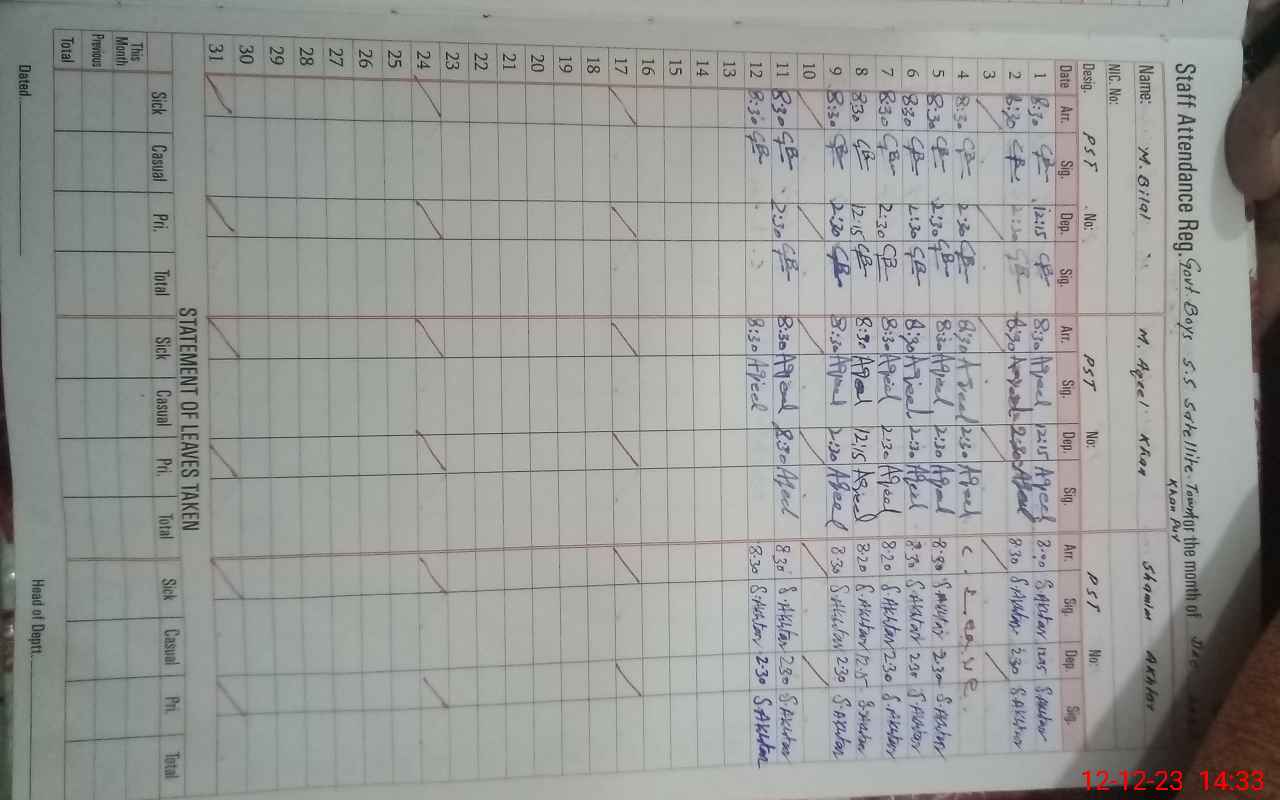 Staff Attendance Reg. Govt Boys S.S Satellite Town for the month of Dec
Khan Pur
Name: M. Bilal M. Aqeel Khan Shamim Akhtar
NIC. No:
Desig. PST No: PST No: PST No:
Date Arr. Sig. Dep. Sig. Arr. Sig. Dep. Sig. Arr. Sig. Dep. Sig.
1 8:30 12:15 8:30 Aqeel 12:15 Aqeel S.Akhtar 12:15 S.Akhtar
2 8:30 2:30 8:30 Aqeel 2:30 Aqeel 8:30 S.Akhtar 2:30 S.Akhtar
3
4 8:30 2:30 8:30 Aqeel 2:30 Aqeel C. Leave
5 8:30 2:30 8:30 Aqeel 2:30 Aqeel 8:30 S.Akhtar 2:30 S.Akhtar
6 8:30 2:30 8:30 Aqeel 2:30 Aqeel 8:30 S.Akhtar 2:30 S.Akhtar
7 8:30 2:30 8:30 Aqeel 2:30 Aqeel 8:20 S.Akhtar 2:30 S.Akhtar
8 8:30 12:15 8:30 Aqeel 12:15 Aqeel 8:20 S.Akhtar 12:15 S.Akhtar
9 8:30 2:30 8:30 Aqeel 2:30 Aqeel 8:30 S.Akhtar 2:30 S.Akhtar
10
11 8:30 2:30 8:30 Aqeel 8:30 Aqeel 8:30 S.Akhtar 2:30 S.Akhtar
12 8:30 8:30 Aqeel 8:30 S.Akhtar 2:30 S.Akhtar
13
14
15
16
17
18
19
20
21
22
23
24
25
26
27
28
29
30
31
STATEMENT OF LEAVES TAKEN
Sick Casual Pri. Total Sick Casual Pri. Total Sick Casual Pri. Total
This Month
Previous
Total
Dated Head of Deptt.
12-12-23 14:33